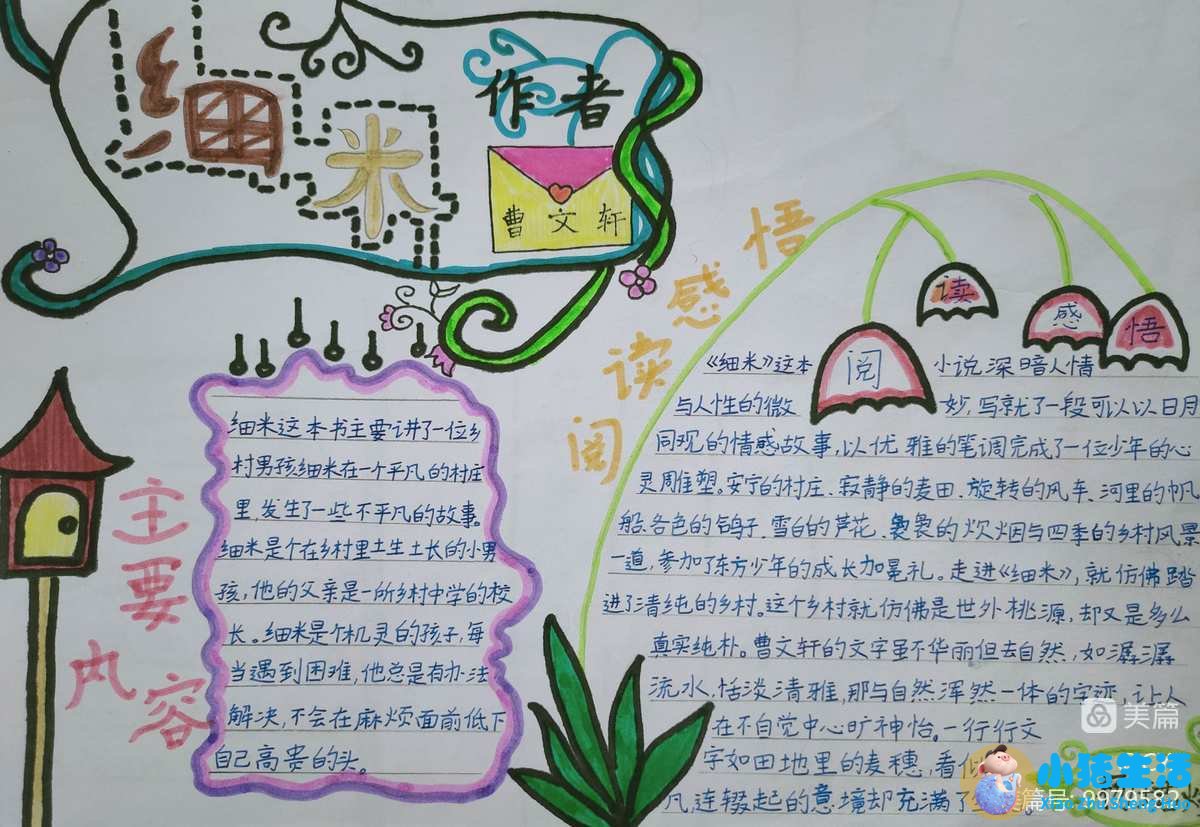 细米
作者
曹文轩
主要内容
细米这本书主要讲了一位乡
村男孩细米在一个平凡的村庄
里,发生了一些不平凡的故事。
细米是个在乡村里土生土长的小男
孩,他的父亲是一所乡村中学的校
长。细米是个机灵的孩子,每
当遇到困难,他总是有办法
解决,不会在麻烦面前低下
自己高贵的头。
阅读感悟
阅读感悟
《细米》这本小说深暗人情
与人性的微妙,写就了一段可以以日月
同观的情感故事,以优雅的笔调完成了一位少年的心
灵雕塑。安宁的村庄、寂静的麦田、旋转的风车、河里的帆
船、各色的鸽子、雪白的芦花、袅袅的炊烟与四季的乡村风景
一道,参加了东方少年的成长加冕礼。走进《细米》,就仿佛踏
进了清纯的乡村。这个乡村就仿佛是世外桃源,却又是多么
真实纯朴。曹文轩的文字虽不华丽但去自然,如潺潺
流水,恬淡清雅,那与自然浑然一体的字迹,让人
在不自觉中心旷神怡。一行行文
字如田地里的麦穗,看似
凡连辍起的意境却充满了
美篇
美篇号:9979582
小猪生活
Xiao Zhu Sheng Huo